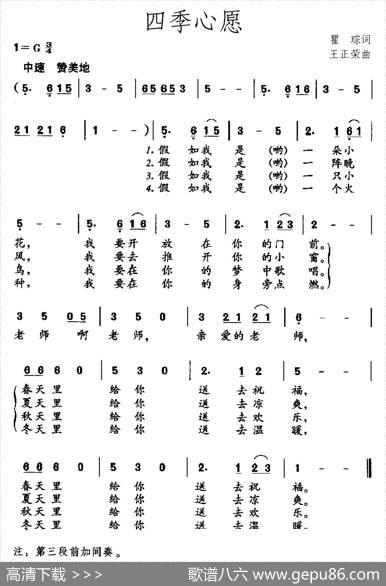 四季心愿
1=G 3/4
瞿 琮词
王正荣曲
中速 赞美地
(5. 6 1 5 | 3 - 5 | 5. 6 1 5 | 3 - 5 | 6 5 6 5 3 | 6 5 6 5 3 |
2 1 2 1 6 | 1 - - ) | 5. 6 1 5 | 3 - 5 | 2. 1 6 1 |
1.假 如我 是 (哟) 一 朵小
2.假 如我 是 (哟) 一 阵晚
3.假 如我 是 (哟) 一 只小
4.假 如我 是 (哟) 一 个火
5 - - | 5. 6 1 6 | 3 - 5 | 2. 1 2 3 | 2 - - |
花， 我 要开 放 在 你 的门 前。
风， 我 要去 推 开 你 的小 窗。
鸟， 我 要在 你 的 梦 中歌 唱。
种， 我 要在 你 的 身 旁点 燃。
3 5 0 5 | 3 5 0 | 3 2 1 2 1 | 6 - - |
老 师 啊 老 师， 亲 爱的 老 师，
6 6 6 0 | 5 3 0 | 2. 1 2 | 5 - - |
春天里 给你 送 去祝 福，
夏天里 给你 送 去凉 爽，
秋天里 给你 送 去欢 乐，
冬天里 给你 送 去温 暖，
6 6 6 0 | 5 3 0 | 2. 2 3 | 1 - - |
春天里 给你 送 去祝 福。
夏天里 给你 送 去凉 爽。
秋天里 给你 送 去欢 乐。
冬天里 给你 送 去温 暖。
注：第三段前加间奏。
高清下载 >>>>
歌谱八六 www.gepu86.com